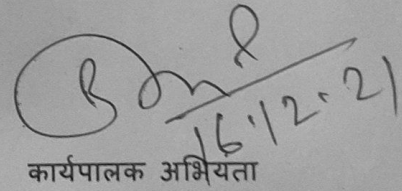 16.12.21
कार्यपालक अभियंता